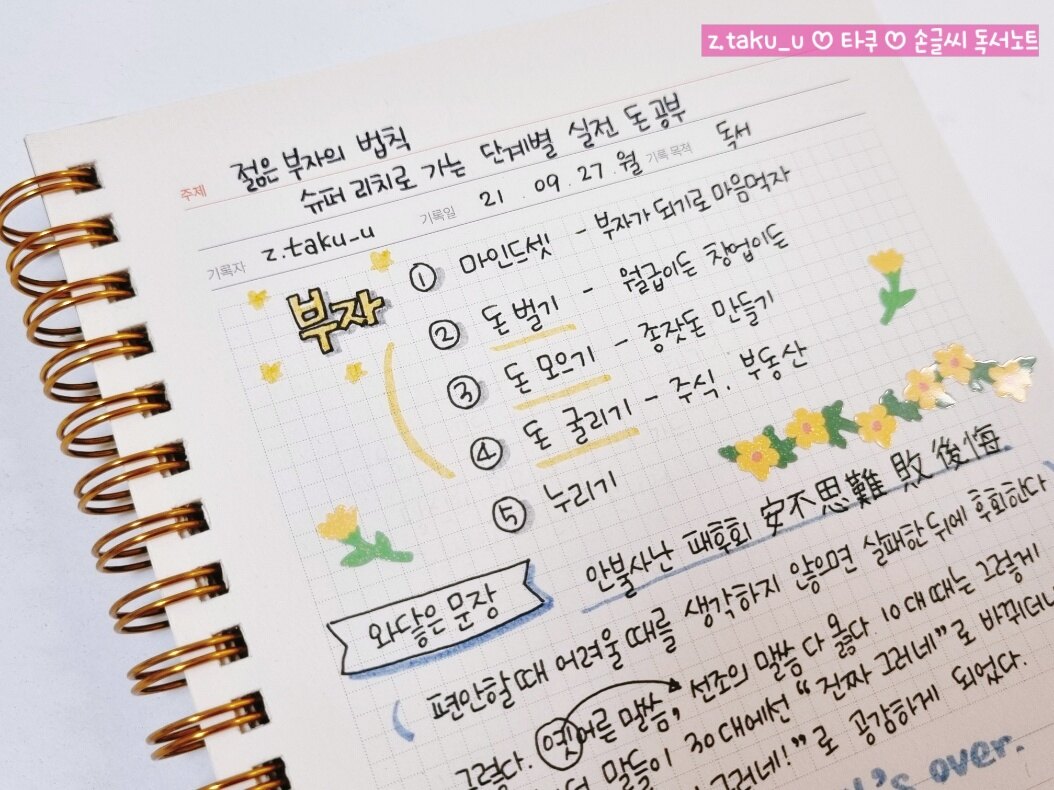 z.taku_u ♡ 타쿠 ♡ 손글씨 독서노트
주제 젊은부자의 법칙
슈퍼리치로 가는 단계별 실전 돈공부
기록자 z.taku_u 기록일 21.09.27.월 기록 목적 독서
부자
① 마인드셋 - 부자가 되기로 마음먹자
② 돈 벌기 - 월급이든 창업이든
③ 돈 모으기 - 종잣돈 만들기
④ 돈 굴리기 - 주식. 부동산
⑤ 누리기
와닿은 문장
안불사난 패후회 安不思難 敗後悔
편안할때 어려울때를 생각하지 않으면 실패한 뒤에 후회한다
그렇다. 옛어른 말씀, 선조의 말씀 다 옳다 10대때는 그렇게
말들이 30대에선 "진짜 그러네"로 바뀌더니
그러네!"로 공감하게 되었다.
's over.